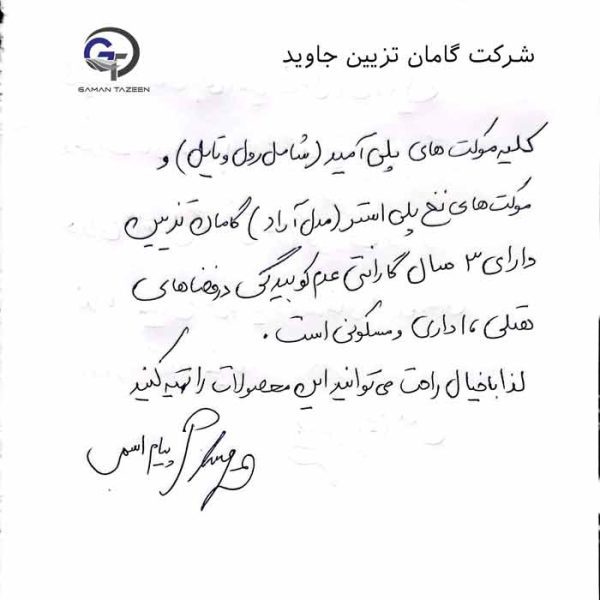 شرکت گامان تزیین جاوید
GT
GAMAN TAZEEN
کلیه موکت های پلی آمید (شامل رول و تایل) و
موکت های نخ پلی استر (مدل آراد) گامان تزیین
دارای ۳ سال گارانتی عدم کوبیدگی در فضاهای
هتلی، اداری و مسکونی است.
لذا با خیال راحت می توانید این محصولات را تهیه کنید
پیام